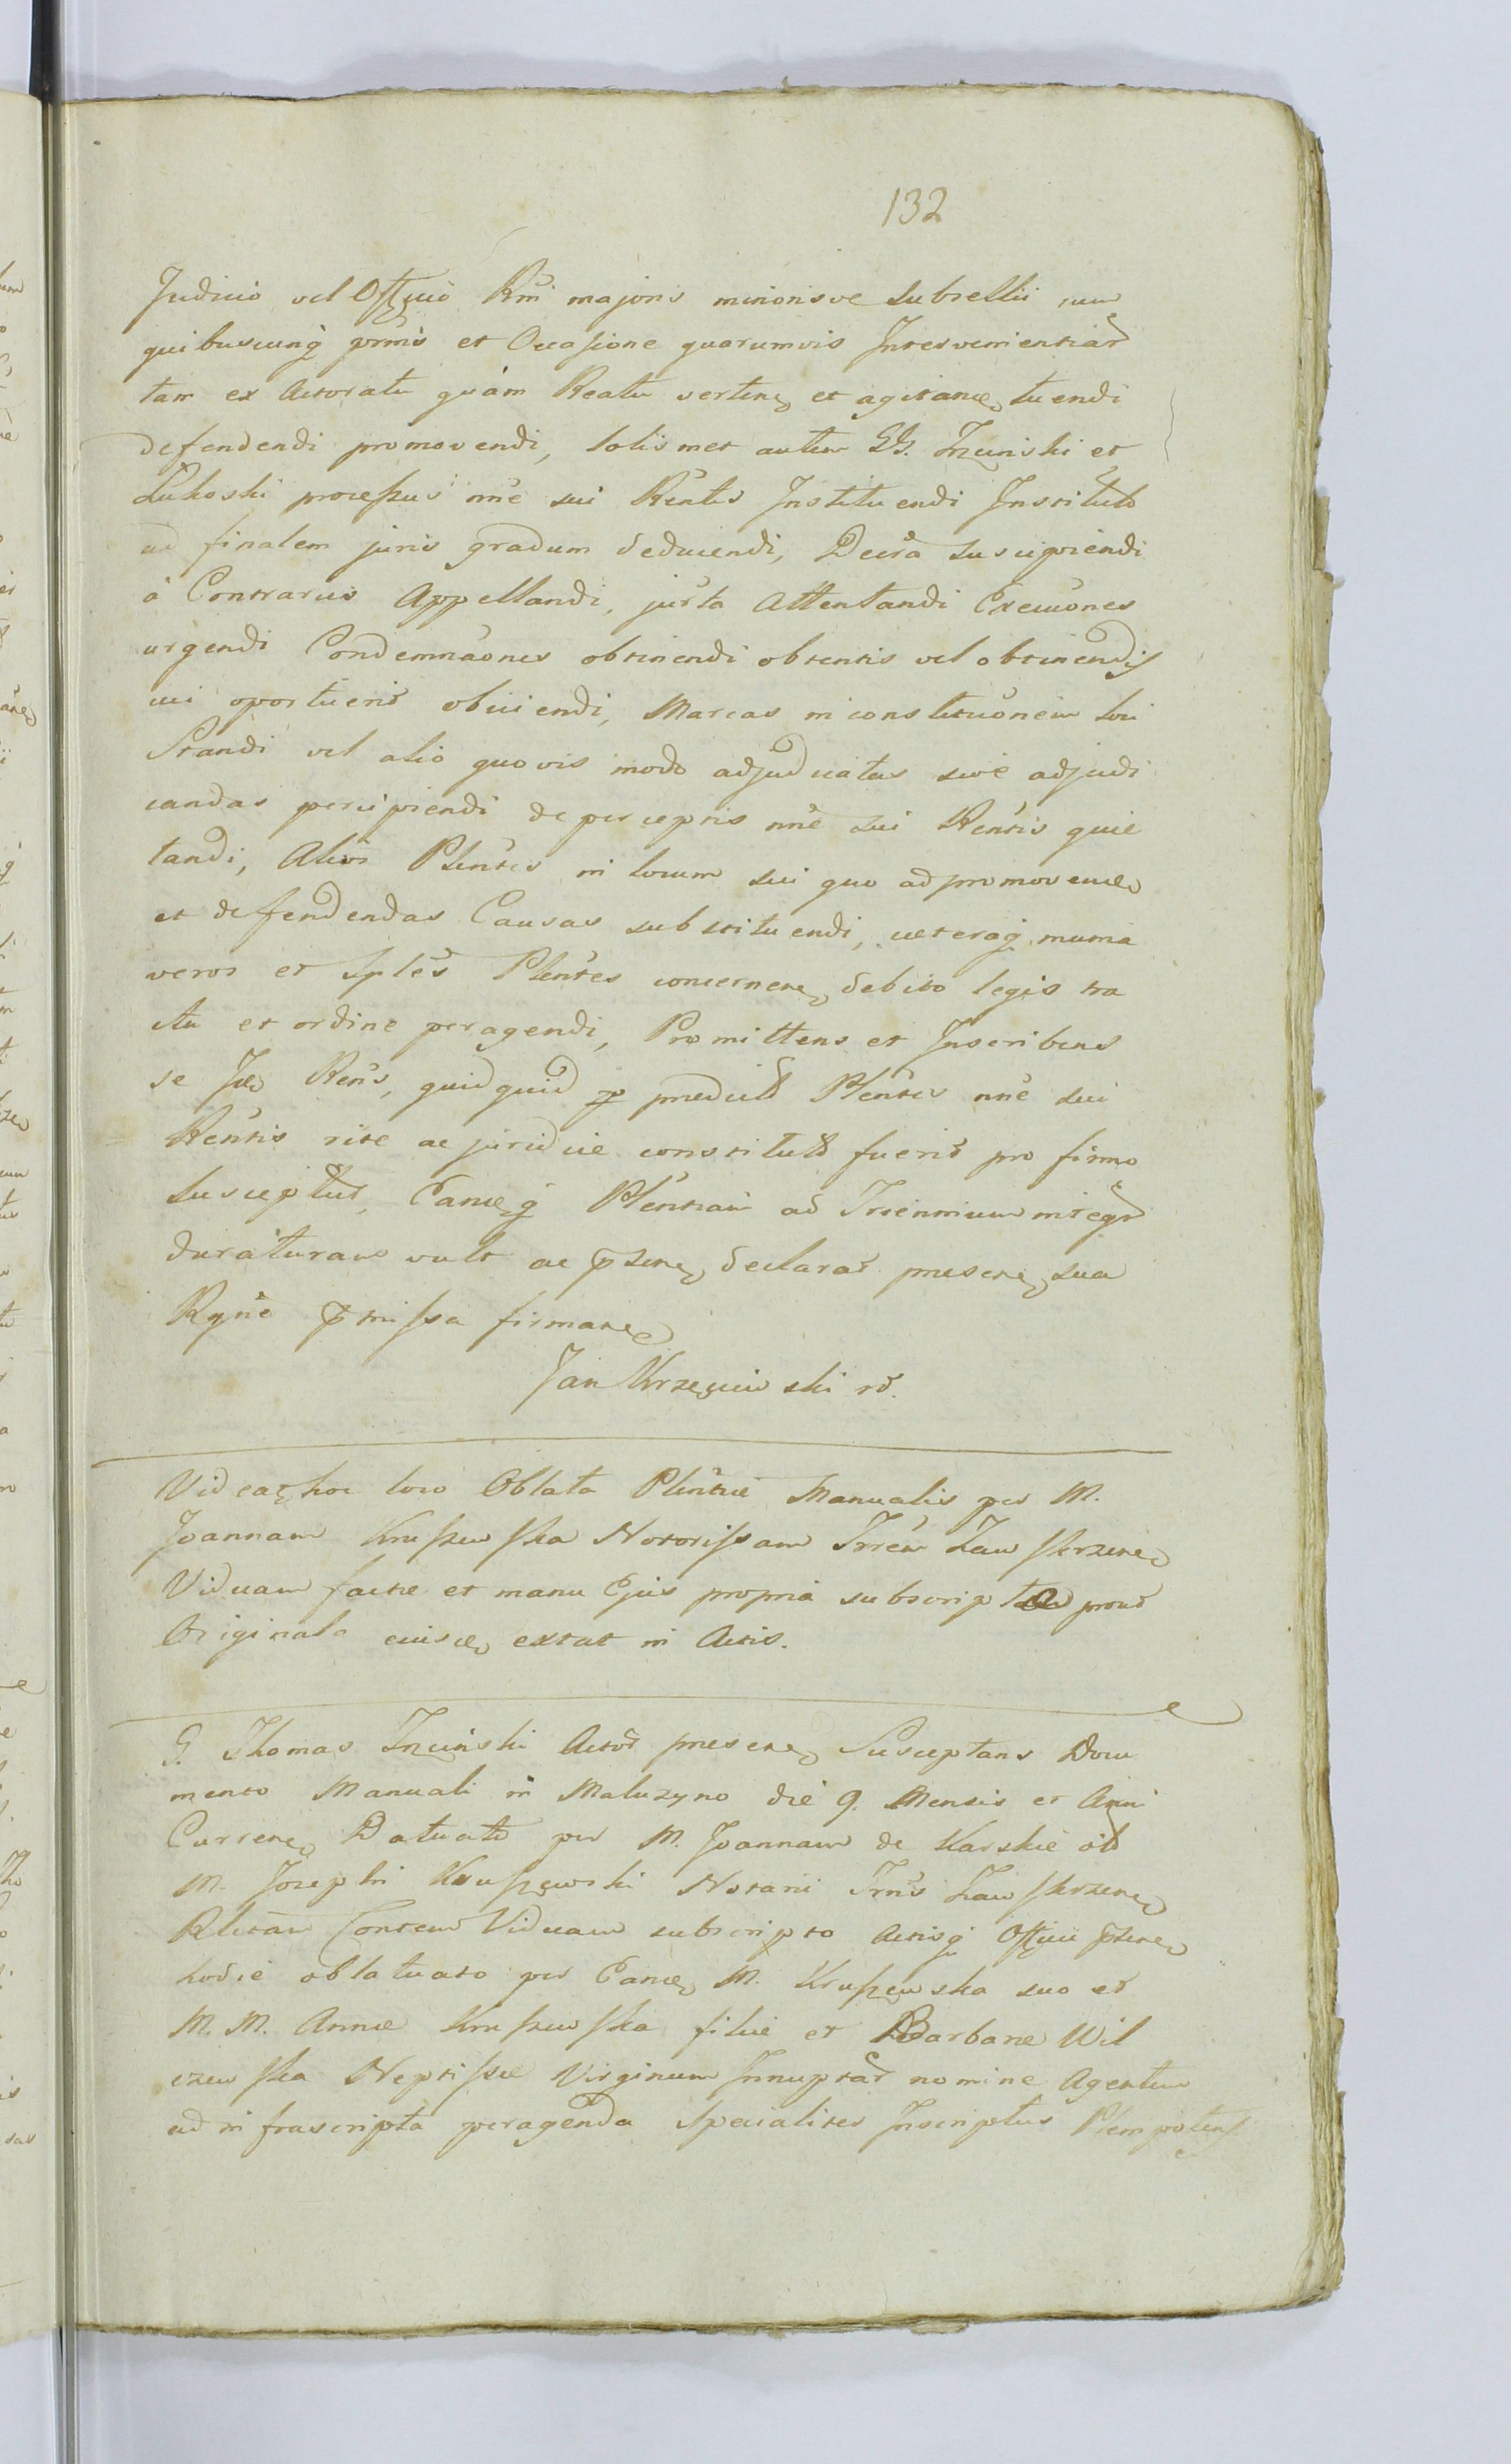 132
Judicio vel Offcio Rni majoris minorisve Subsellii cum
quibuscunq prnis et Occasione quarumvis Intervenientiar
tam ex Actoratu quàm Reatu verten et agitan tuendi
defendendi promovendi, Solis met autem GG. Trzcinski et
Lukoski processus nne sui Rentis Instituendi Institut
ad finalem juris gradum deducendi, Decra suscipiendi
à Contrariis Appellandi, juxta Attentandi Execuones
urgendi Condemnaones obtinendi obtentis vel obtinendis
cui oportuerit obiiciendi, Marcas in constituonem loci
Standi vel alio quovis modo adjudicatas sive adjudi
candas percipiendi de perceptis nne sui Rentis quie
tandi, Alios Plentes in locum sui quo ad promoven
et defendendas Causas substituendi, ceteraq munia
veros et Sples Plentes concernen debito legis tra
ctu et ordine peragendi, Promittens et Inscribens
se Ice Rens, quidquid p predict Plentes nne sui
Rentis rite ac juridice constitut fuerit pro firmo
Suscepturs, Eamq Plentiam ad Triennium integr
duraturam vult ac pzen declarat presen sua
Rgne pmissa firman
Jan Krzęciewski rd.
Videat hoc loco Oblata Plentie Manualis per M.
Joannam Kruszewska Notorissam Trrem Zawskrzen
Viduam facte et manu Ejus propria subscript prout
Originale ejusce extat in Actis.
G. Thomas Trzcinski Actor presen Susceptans Docu
mento Manuali in Maluzyno die 9. Mensis et Anni
Curren Datuato per M. Joannam de Karskie olt
M. Josephi Kruszewski Notarii Trris Zawskrzen
Relictam Contem Viduam subscripto Actisq Offcii pzen
hodie oblatuato per Eanc M. Kruszewska suo et
M. M. Annæ Kruszewska filiæ et Barbaræ Wil
czewska Neptissæ Virginum Innuptar nomine Agentem
ad infrascripta peragenda Specialiter Inscriptus Plenipotens